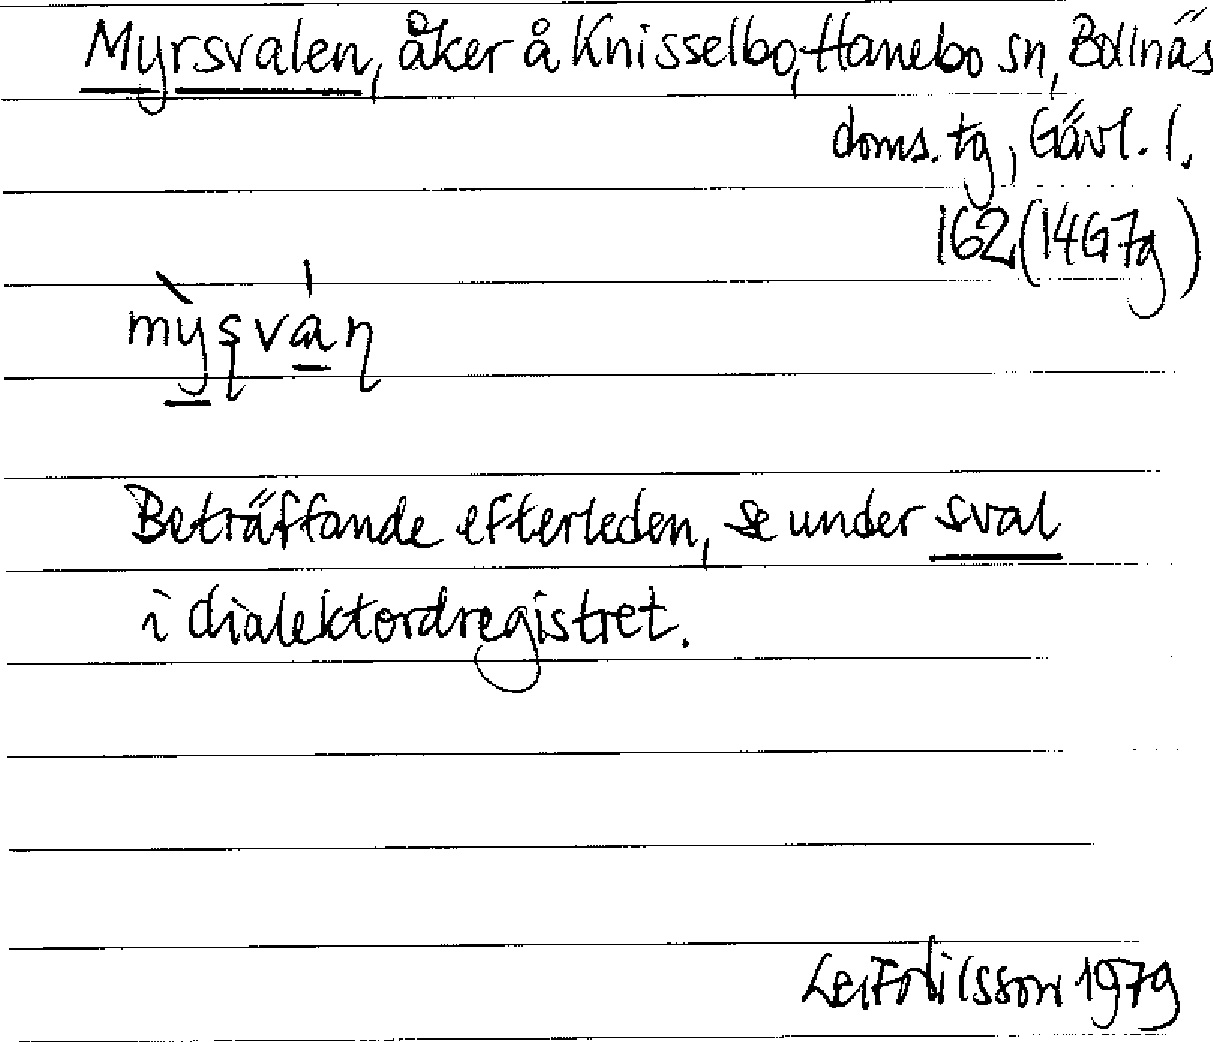 Myrsvalen, åker å Knisselbo, Hanebo sn, Bollnäs
doms. tg, Gävl. l.
162 (14G7g)
mỳʂváɳ
Beträffande efterleden, se under sval
i dialektordregistret.
Leif Nilsson 1979